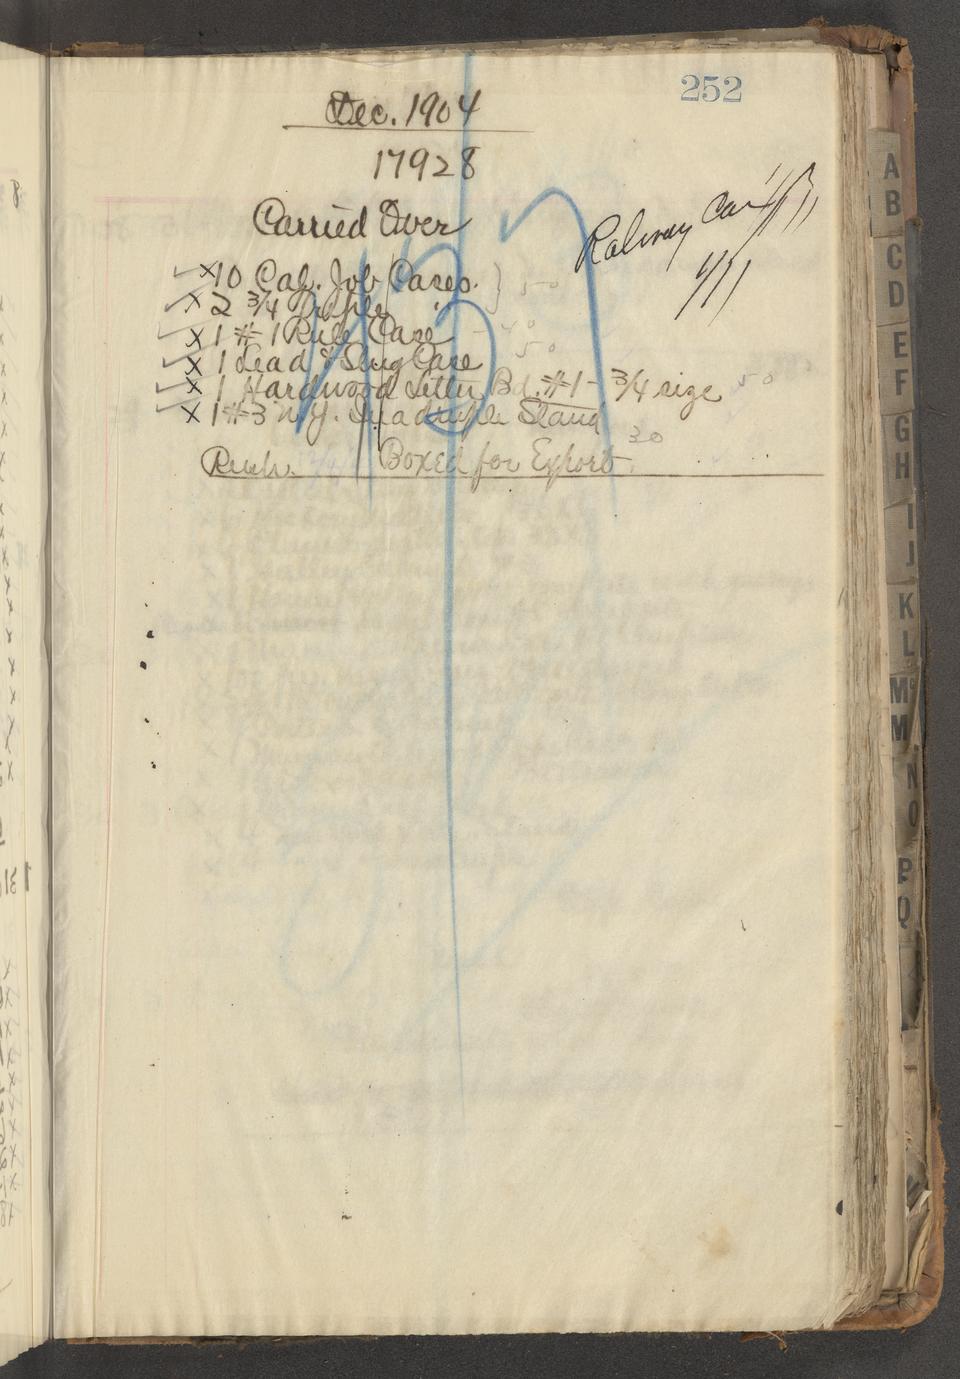 252
Dec. 1904
17928
Carried Over
Railway Car
1/11
x 10 Cal. Job Cases. } 50
x 2 3/4 Triple "
x 1 #1 Rule Case
x 1 Lead & Slug Case 50
x 1 Hardwood Letter Bd. #1 - 3/4 size 50
x 1 #3 N.Y. Quadruple Stand
30
Rush. Boxed for Export.
A
B
C
D
E
F
G
H
I
J
K
L
Mc
M
N
O
P
Q